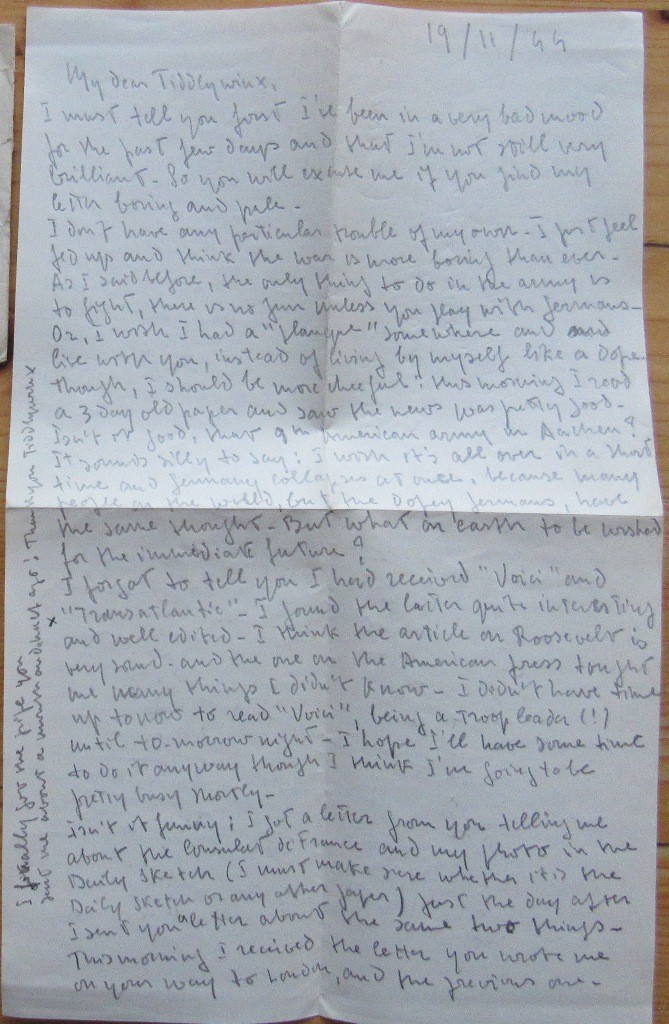 19/11/44
My dear Tiddlywinx,
I must tell you first I've been in a very bad mood
for the past few days and that I'm not still very
brilliant. So you will excuse me if you find my
letter boring and pale.
I don't have any particular trouble of my own. I just feel
fed up and think the war is more boring than ever.
As I said before, the only thing to do in the army is
to fight, there is no fun unless you play with Germans.
Or, I wish I had a "planque" somewhere and
live with you, instead of living by myself like a dope.
Though, I should be more cheerful: this morning I read
a 3 day old paper and saw the news was pretty good.
Isn't it good, that 9th American army in Aachen?
It sounds silly to say: I wish it's all over in a short
time and Germany collapses at once, because many
people in the world, but the dopey Germans, have
the same thought. But what on earth to be wished
for the immediate future?
I forgot to tell you I had received "Voici" and
"Transatlantic". I found the latter quite interesting
and well edited. I think the article on Roosevelt is
very sound. and the one on the American press taught
me many things I didn't know. I didn't have time
up to now to read "Voici", being a Troop leader (!)
until to-morrow night. I hope I'll have some time
to do it anyway though I think I'm going to be
pretty busy shortly.
isn't it funny: I got a letter from you telling me
about the Consulat de France and my photo in the
Daily Sketch (I must make sure whether it is the
Daily Sketch or any other paper) just the day after
I sent you a letter about the same two things.
This morning I received the letter you wrote me
on your way to London, and the previous one.
x I finally got the pipe you
sent me about a month and half ago! Thank you Tiddlywinx